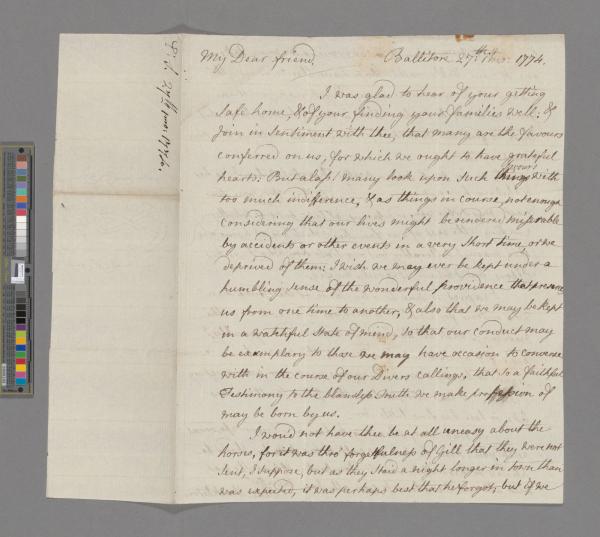 My Dear friend. Ballitore 27th 1774.
I was glad to hear of your getting
safe home, & of your finding your families well; &
Join in Sentiment with thee, that many are the favours
conferred on us, for which we ought to have grateful
hearts: But alas! many look upon such things favours with
too much indifference, & as things in course, not enough
considering that our lives might be rendered miserable
by accidents or other events in a very short time, or we
deprived of them: I wish we may ever be kept under a
humbling sense of the wonderful providence that preserves
us from one time to another, & also that we may be kept
in a watchful State of mind, so that our conduct may
be exemplary to those we may have occasion to converse
with in the course of our Divers callings, that so a faithful
Testimony to the blessed Truth we make profession of
may be born by us.
I would not have thee be at all uneasy about the
horses, for it was thro' forgetfulness of Gill that they were not
sent, I suppose, but as they staid a night longer in town than
was expected, it was perhaps best that he forgot, but if we